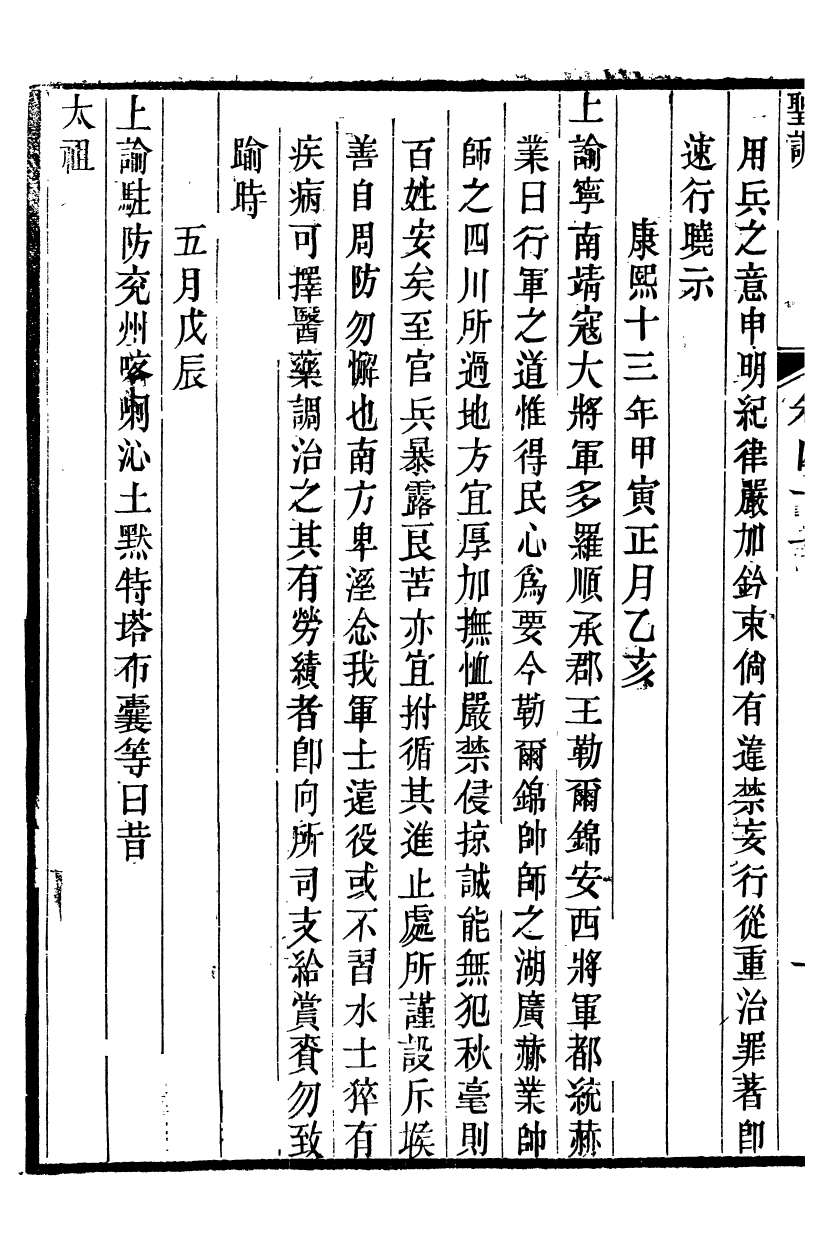 用兵之意申明紀律嚴加鈐束倘有違禁妄行從重治罪著卽
速行曉示
康熙十三年甲寅正月乙亥
上諭寧南靖寇大將軍多羅順承郡王勒爾錦安西將軍都統赫
業曰行軍之道惟得民心爲要今勒爾錦帥師之湖廣赫業帥
師之四川所過地方宜厚加撫恤嚴禁侵掠誠能無犯秋毫則
百姓安矣至官兵暴露艮苦亦宜拊循其進止處所謹設斥堠
善自周防勿懈也南方卑溼念我軍士遠役或不習水土猝有
疾病可擇醫藥調治之其有勞績者卽向所司支給賞賚勿致
踰時
五月戊辰
上諭駐防兖州喀喇沁土默特塔布囊等曰昔
太祖